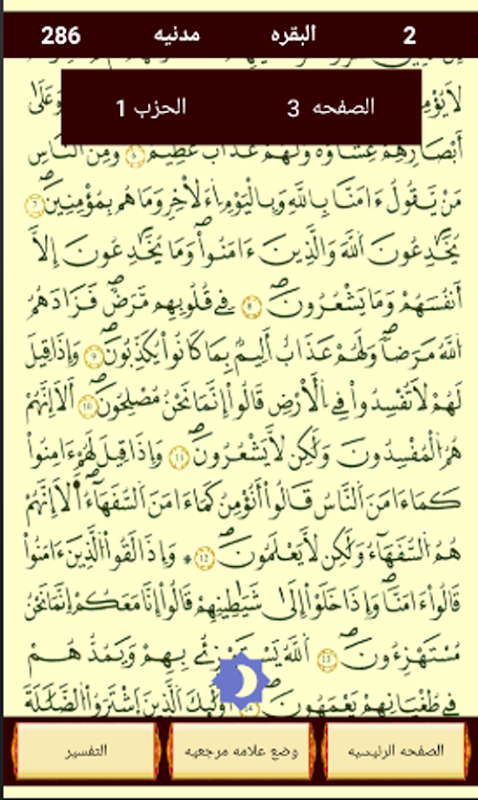 2 البقره مدنيه 286
الصفحه 3 الحزب 1
وَعَلَىٰ
أَبْصَٰرِهِمْ غِشَٰوَةٌ وَلَهُمْ عَذَابٌ عَظِيمٌ ٦ وَمِنَ النَّاسِ
مَنْ يَّقُولُ ءَامَنَّا بِاللَّهِ وَبِالْيَوْمِ اِ۬لَاخِرِ وَمَا هُم بِمُؤْمِنِينَ ٧
يُخَٰدِعُونَ اَللَّهَ وَالَّذِينَ ءَامَنُواْ وَمَا يُخَٰدِعُونَ إِلَّا
أَنفُسَهُمْ وَمَا يَشْعُرُونَ ٨ فِي قُلُوبِهِم مَّرَضٌ فَزَادَهُمُ
اُللَّهُ مَرَضاً وَلَهُمْ عَذَابٌ اَلِيمٌ بِمَا كَانُواْ يُكَذِّبُونَ ٩ وَإِذَا قِيلَ
لَهُمْ لَا تُفْسِدُواْ فِي اِ۬لْأَرْضِ قَالُواْ إِنَّمَا نَحْنُ مُصْلِحُونَ ١٠ أَلَا إِنَّهُمْ
هُمُ اُ۬لْمُفْسِدُونَ وَلَٰكِن لَّا يَشْعُرُونَ ١١ وَإِذَا قِيلَ لَهُمُ ءَامِنُواْ
كَمَا ءَامَنَ اَ۬لنَّاسُ قَالُواْ أَنُؤْمِنُ كَمَا ءَامَنَ اَ۬لسُّفَهَاءُ أَلَا إِنَّهُمْ
هُمُ اُ۬لسُّفَهَاءُ وَلَٰكِن لَّا يَعْلَمُونَ ١٢ * وَإِذَا لَقُواْ اُ۬لذِينَ ءَامَنُواْ
قَالُواْ ءَامَنَّا وَإِذَا خَلَوْاْ إِلَىٰ شَيَٰطِينِهِمْ قَالُواْ إِنَّا مَعَكُمْ إِنَّمَا نَحْنُ
مُسْتَهْزِءُونَ ١٣ اَ۬للَّهُ يَسْتَهْزِئُ بِهِمْ وَيَمُدُّهُمْ
فِي طُغْيَٰنِهِمْ يَعْمَهُونَ أُوْلَٰئِكَ اَ۬لذِينَ اَ۪شْتَرَوُاْ اُ۬لضَّلَٰلَةَ
الصفحه الرئيسيه
وضع علامه مرجعيه
التفسير